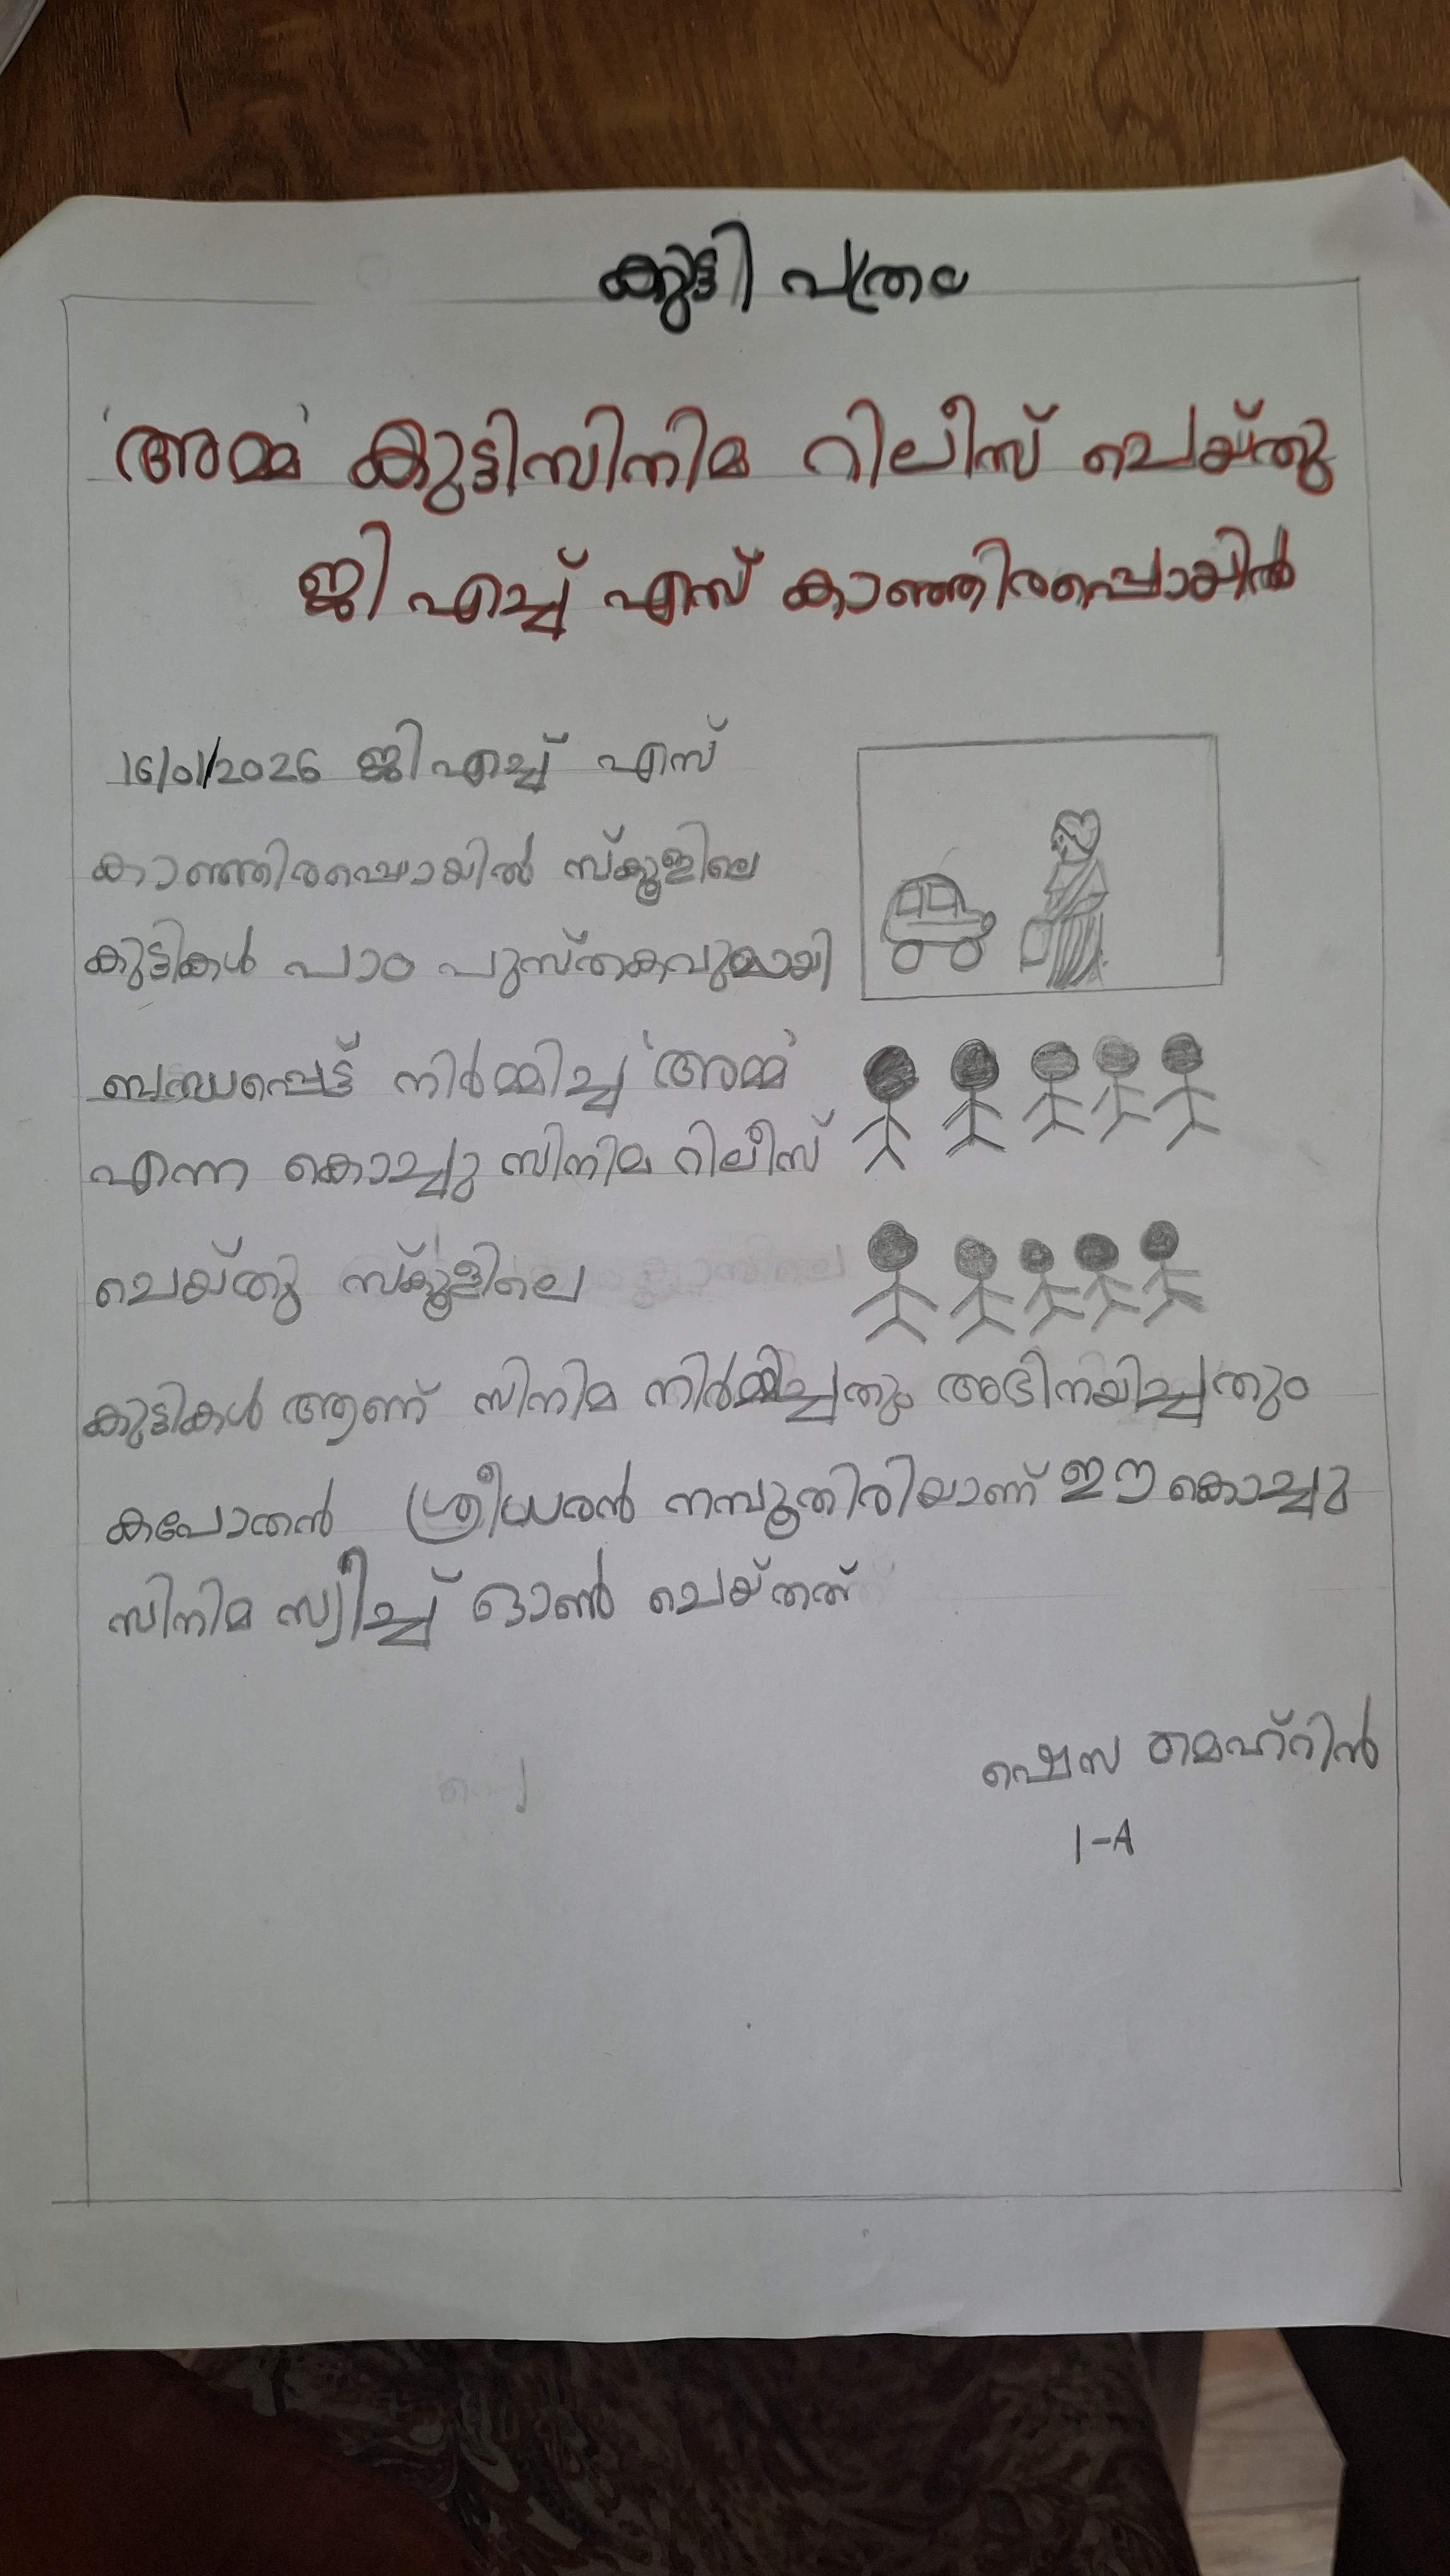 കുട്ടി പത്രം
'അമ്മ' കുട്ടിസിനിമ റിലീസ് ചെയ്തു
ജി എച്ച് എസ് കാഞ്ഞിരപ്പൊയിൽ
16/01/2026 ജി എച്ച് എസ്
കാഞ്ഞിരപ്പൊയിൽ സ്കൂളിലെ
കുട്ടികൾ പാഠ പുസ്തകവുമായി
ബന്ധപ്പെട്ട് നിർമ്മിച്ച 'അമ്മ'
എന്ന കൊച്ചു സിനിമ റിലീസ്
ചെയ്തു സ്കൂളിലെ
കുട്ടികൾ ആണ് സിനിമ നിർമ്മിച്ചതും അഭിനയിച്ചതും
കപോതൻ ശ്രീധരൻ നമ്പൂതിരിയാണ് ഈ കൊച്ചു
സിനിമ സ്വീച്ച് ഓൺ ചെയ്തത്
ഷെസ മെഹ്റിൻ
1-A